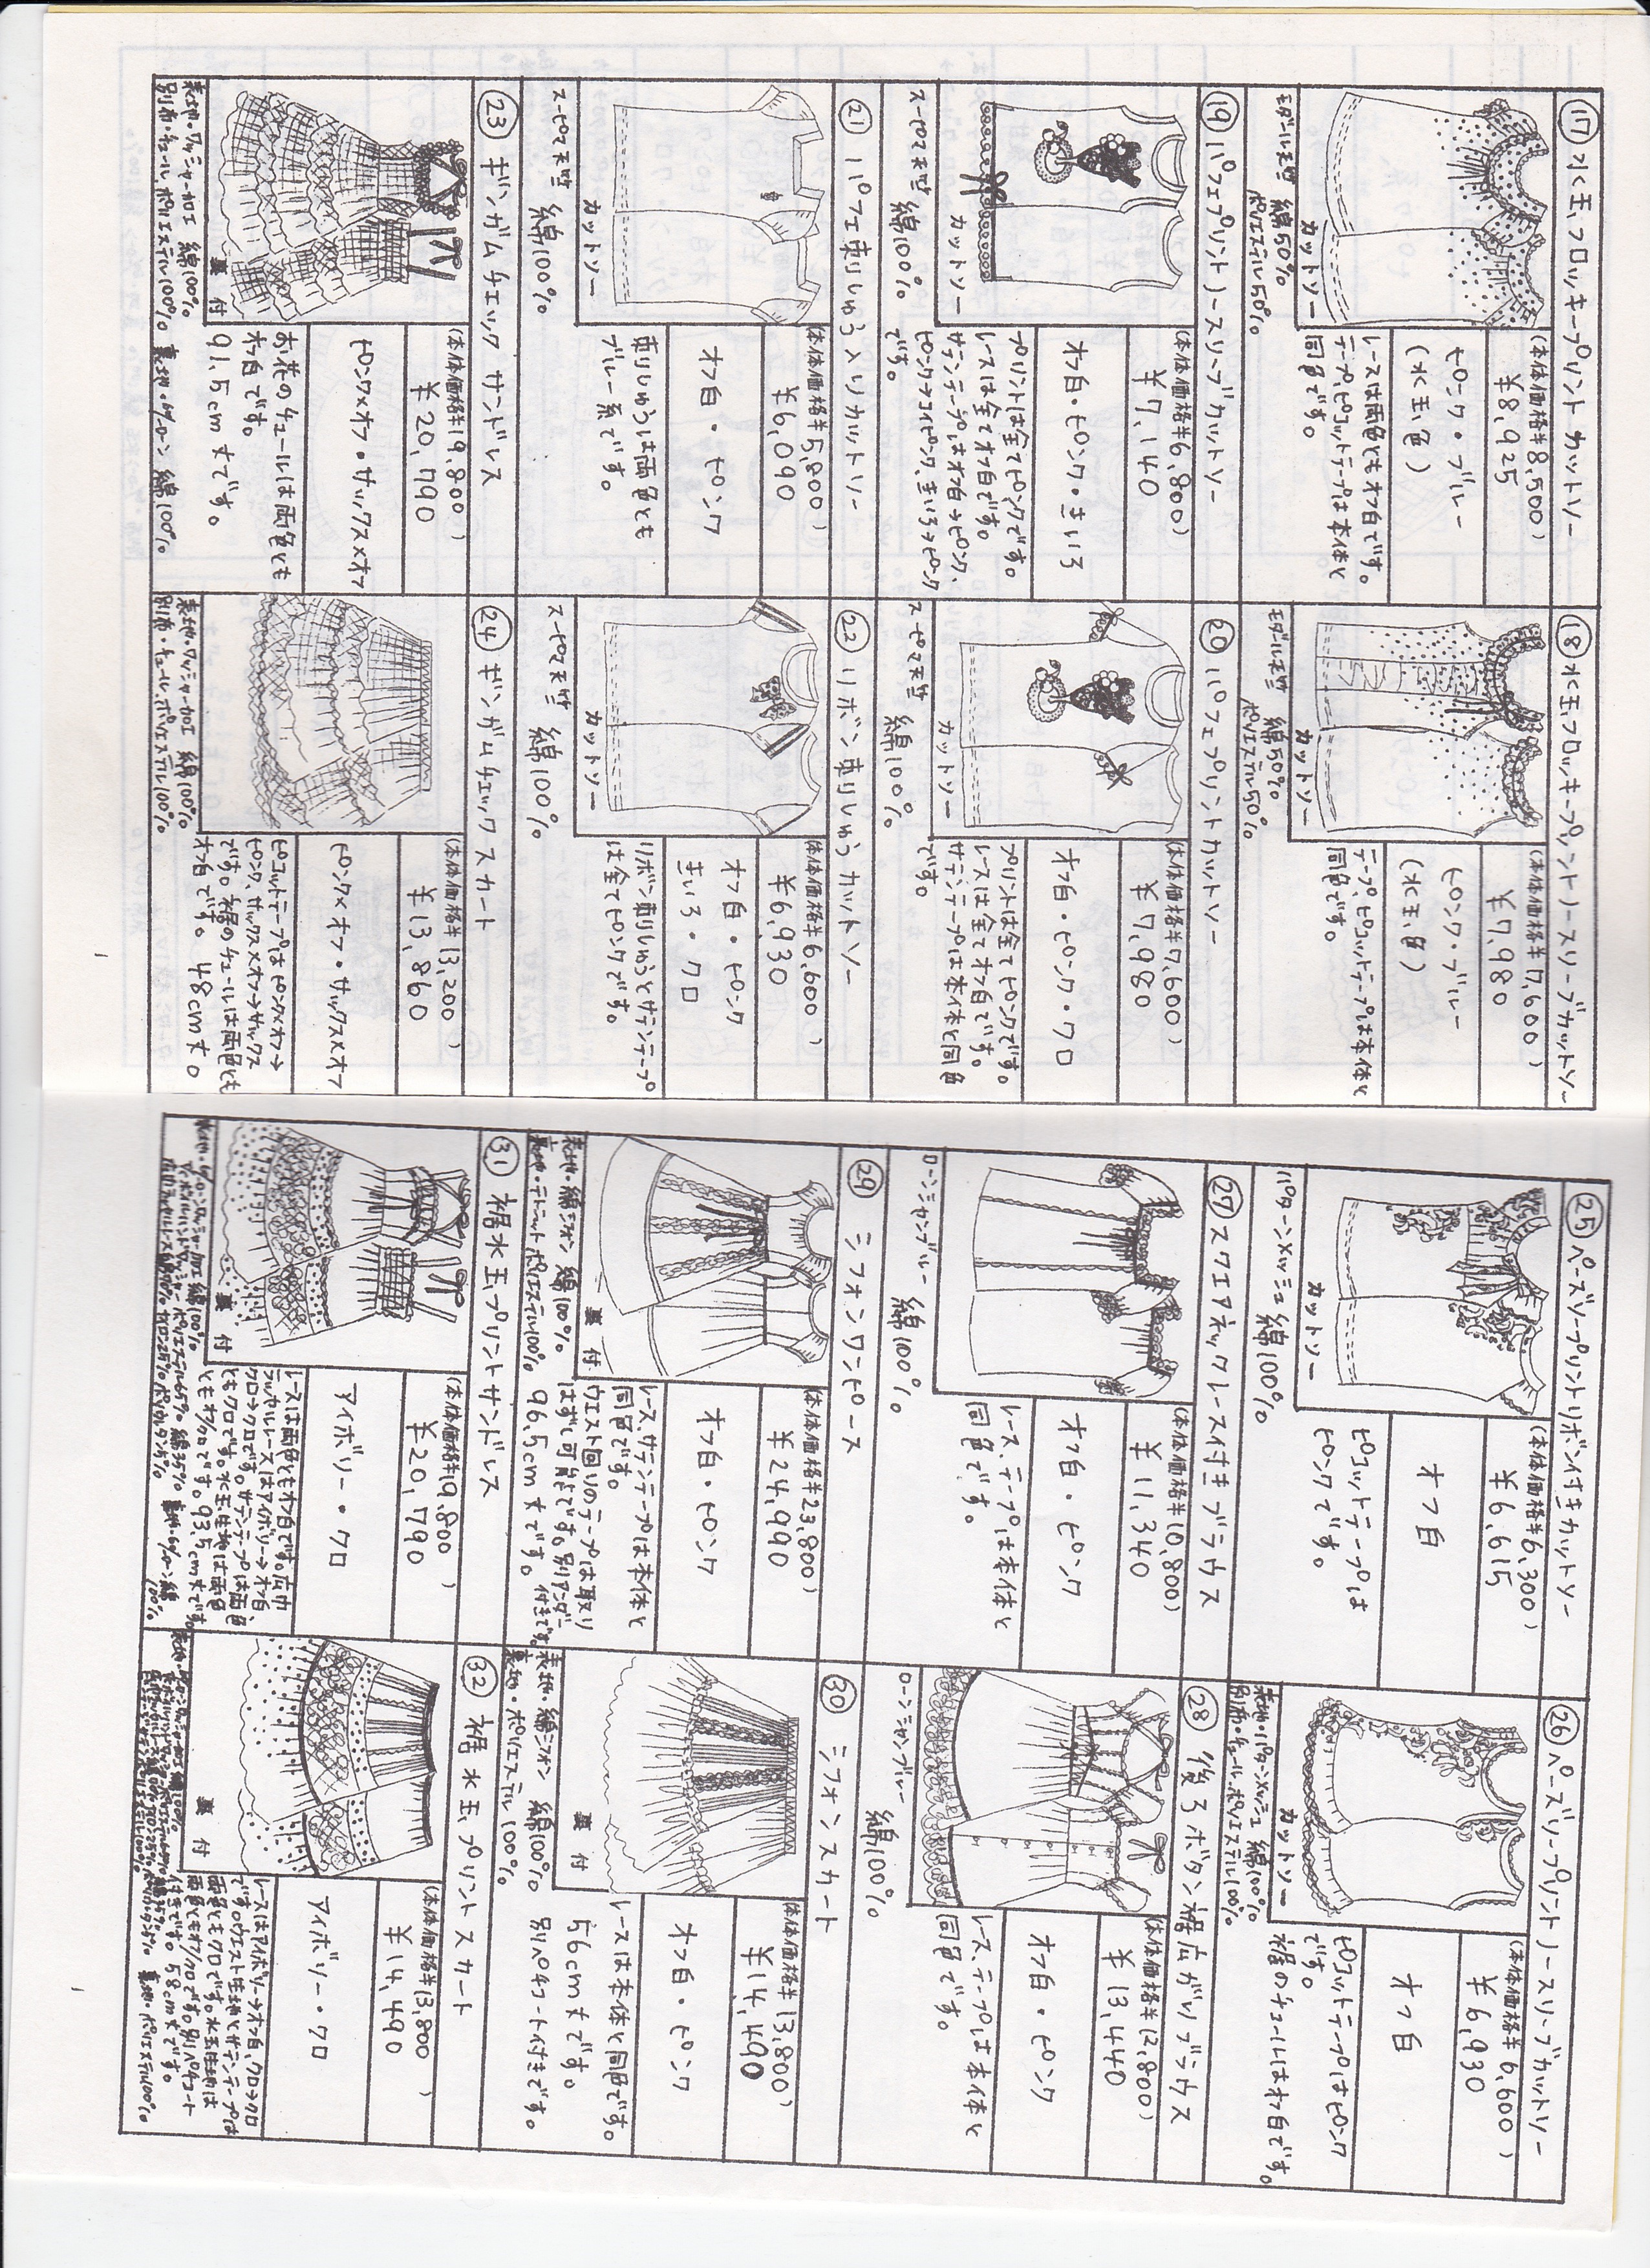 ⑰水玉フロッキープリントカットソー
(本体価格¥8,500)
¥8,925
ピンク・ブルー
(水玉、白)
レースは両色ともオフ白です。
テープ、ピコットテープは本体と
同色です。
カットソー
モダール天竺 綿50%
ポリエステル50%
⑱水玉フロッキープリントノースリーブカットソー
(本体価格¥7,600)
¥7,980
ピンク・ブルー
(水玉、白)
テープ、ピコットテープは本体と
同色です。
カットソー
モダール天竺 綿50%
ポリエステル50%
⑲パフェプリントノースリーブカットソー
(本体価格¥6,800)
¥7,140
オフ白・ピンク・きいろ
プリントは全てピンクです。
レースは全てオフ白です。
サテンテープはオフ白→ピンク、
ピンク→コイピンク、きいろ→ピンク
です。
カットソー
スーピマ天竺 綿100%
⑳パフェプリントカットソー
(本体価格¥7,600)
¥7,980
オフ白・ピンク・クロ
プリントは全てピンクです。
レースは全てオフ白です。
サテンテープは本体と同色
です。
カットソー
スーピマ天竺 綿100%
㉑パフェ刺しゅう入りカットソー
(本体価格¥5,800)
¥6,090
オフ白・ピンク
刺しゅうは両色とも
ブルー系です。
カットソー
スーピマ天竺 綿100%
㉒リボン刺しゅうカットソー
(本体価格¥6,600)
¥6,930
オフ白・ピンク
きいろ・クロ
リボン刺しゅうとサテンテープ
は全てピンクです。
カットソー
スーピマ天竺 綿100%
㉓ギンガムチェックサンドレス
(本体価格¥19,800)
¥20,790
ピンク×オフ・サックス×オフ
お花のチュールは両色とも
オフ白です。
91.5cm丈です。
裏付
表地・ワッシャー加工 綿100%
別布・チュール ポリエステル100% 裏地・60ローン 綿100%
㉔ギンガムチェックスカート
(本体価格¥13,200)
¥13,860
ピンク×オフ・サックス×オフ
ピコットテープはピンク×オフ→
ピンク、サックス×オフ→サックス
です。裾のチュールは両色とも
オフ白です。48cm丈。
表地・ワッシャー加工 綿100%
別布・チュール、ポリエステル100%
㉕ペーズリープリントリボン付きカットソー
(本体価格¥6,300)
¥6,615
オフ白
ピコットテープは
ピンクです。
カットソー
パターンメッシュ 綿100%
㉖ペーズリープリントノースリーブカットソー
(本体価格¥6,600)
¥6,930
オフ白
ピコットテープはピンク
です。
裾のチュールはオフ白です。
カットソー
表地・パターンメッシュ 綿100%
別布・チュール、ポリエステル100%
㉗スクエアネックレース付きブラウス
(本体価格¥10,800)
¥11,340
オフ白・ピンク
レース、テープは本体と
同色です。
ローンシャンブレー 綿100%
㉘後ろボタン裾広がりブラウス
(本体価格¥12,800)
¥13,440
オフ白・ピンク
レース、テープは本体と
同色です。
ローンシャンブレー 綿100%
㉙シフォンワンピース
(本体価格¥23,800)
¥24,990
オフ白・ピンク
レース、サテンテープは本体と
同色です。
ウエスト回りのテープは取り
はずし可能です。別リアンダー付きです。
96.5cm丈です。
裏付
表地・綿シフォン 綿100%
裏地・テトニット ポリエステル100%
㉚シフォンスカート
(本体価格¥13,800)
¥14,490
オフ白・ピンク
レースは本体と同色です。
56cm丈です。
別リペチコート付きです。
裏付
表地・綿シフォン 綿100%
裏地・ポリエステル100%
㉛裾水玉プリントサンドレス
(本体価格¥19,800)
¥20,790
アイボリー・クロ
レースは両色ともオフ白です。広巾
ラッセルレースはアイボリー→オフ白、
クロ→クロです。サテンテープは両色
ともクロです。水玉生地は両色
ともオフ/クロです。93.5cm丈です。
裏付
㉜裾水玉プリントスカート
(本体価格¥13,800)
¥14,490
アイボリー・クロ
レースはアイボリー→オフ白、クロ→クロ
です。ウエスト生地とサテンテープは
両色ともクロです。水玉生地は
両色ともオフ/クロです。別リペチコート
付きです。58cm丈です。
裏付